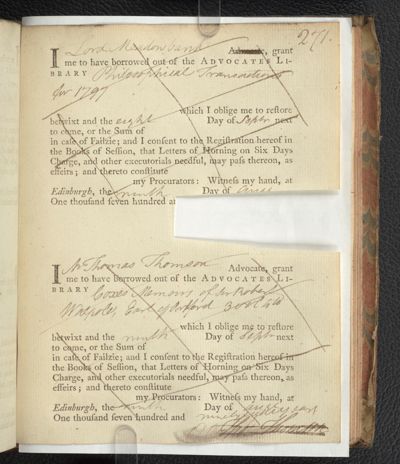 271.
I Lord Meadowbank Advocate, grant
me to have borrowed out of the ADVOCATES LI-
BRARY Philosophical Transactions
for 1797
which I oblige me to reſtore
betwixt and the eight Day of Septr next
to come, or the Sum of
in caſe of Failzie; and I conſent to the Regiſtration hereof in
the Books of Seſſion, that Letters of Horning on Six Days
Charge, and other executorials needful, may paſs thereon, as
effeirs; and thereto conſtitute
my Procurators: Witneſs my hand, at
Edinburgh, the ninth Day of
One thouſand ſeven hundred a
I Mr Thomas Thomson Advocate, grant
me to have borrowed out of the ADVOCATES LI-
BRARY Coxes Memoirs of Sir Robert
Walpole, Earl of Orford 3 vols 4to
which I oblige me to reſtore
betwixt and the ninth Day of Septr next
to come, or the Sum of
in caſe of Failzie; and I conſent to the Regiſtration hereof in
the Books of Seſſion, that Letters of Horning on Six Days
Charge, and other executorials needful, may paſs thereon, as
effeirs; and thereto conſtitute
my Procurators: Witneſs my hand, at
Edinburgh, the ninth Day of
One thouſand ſeven hundred and ninety